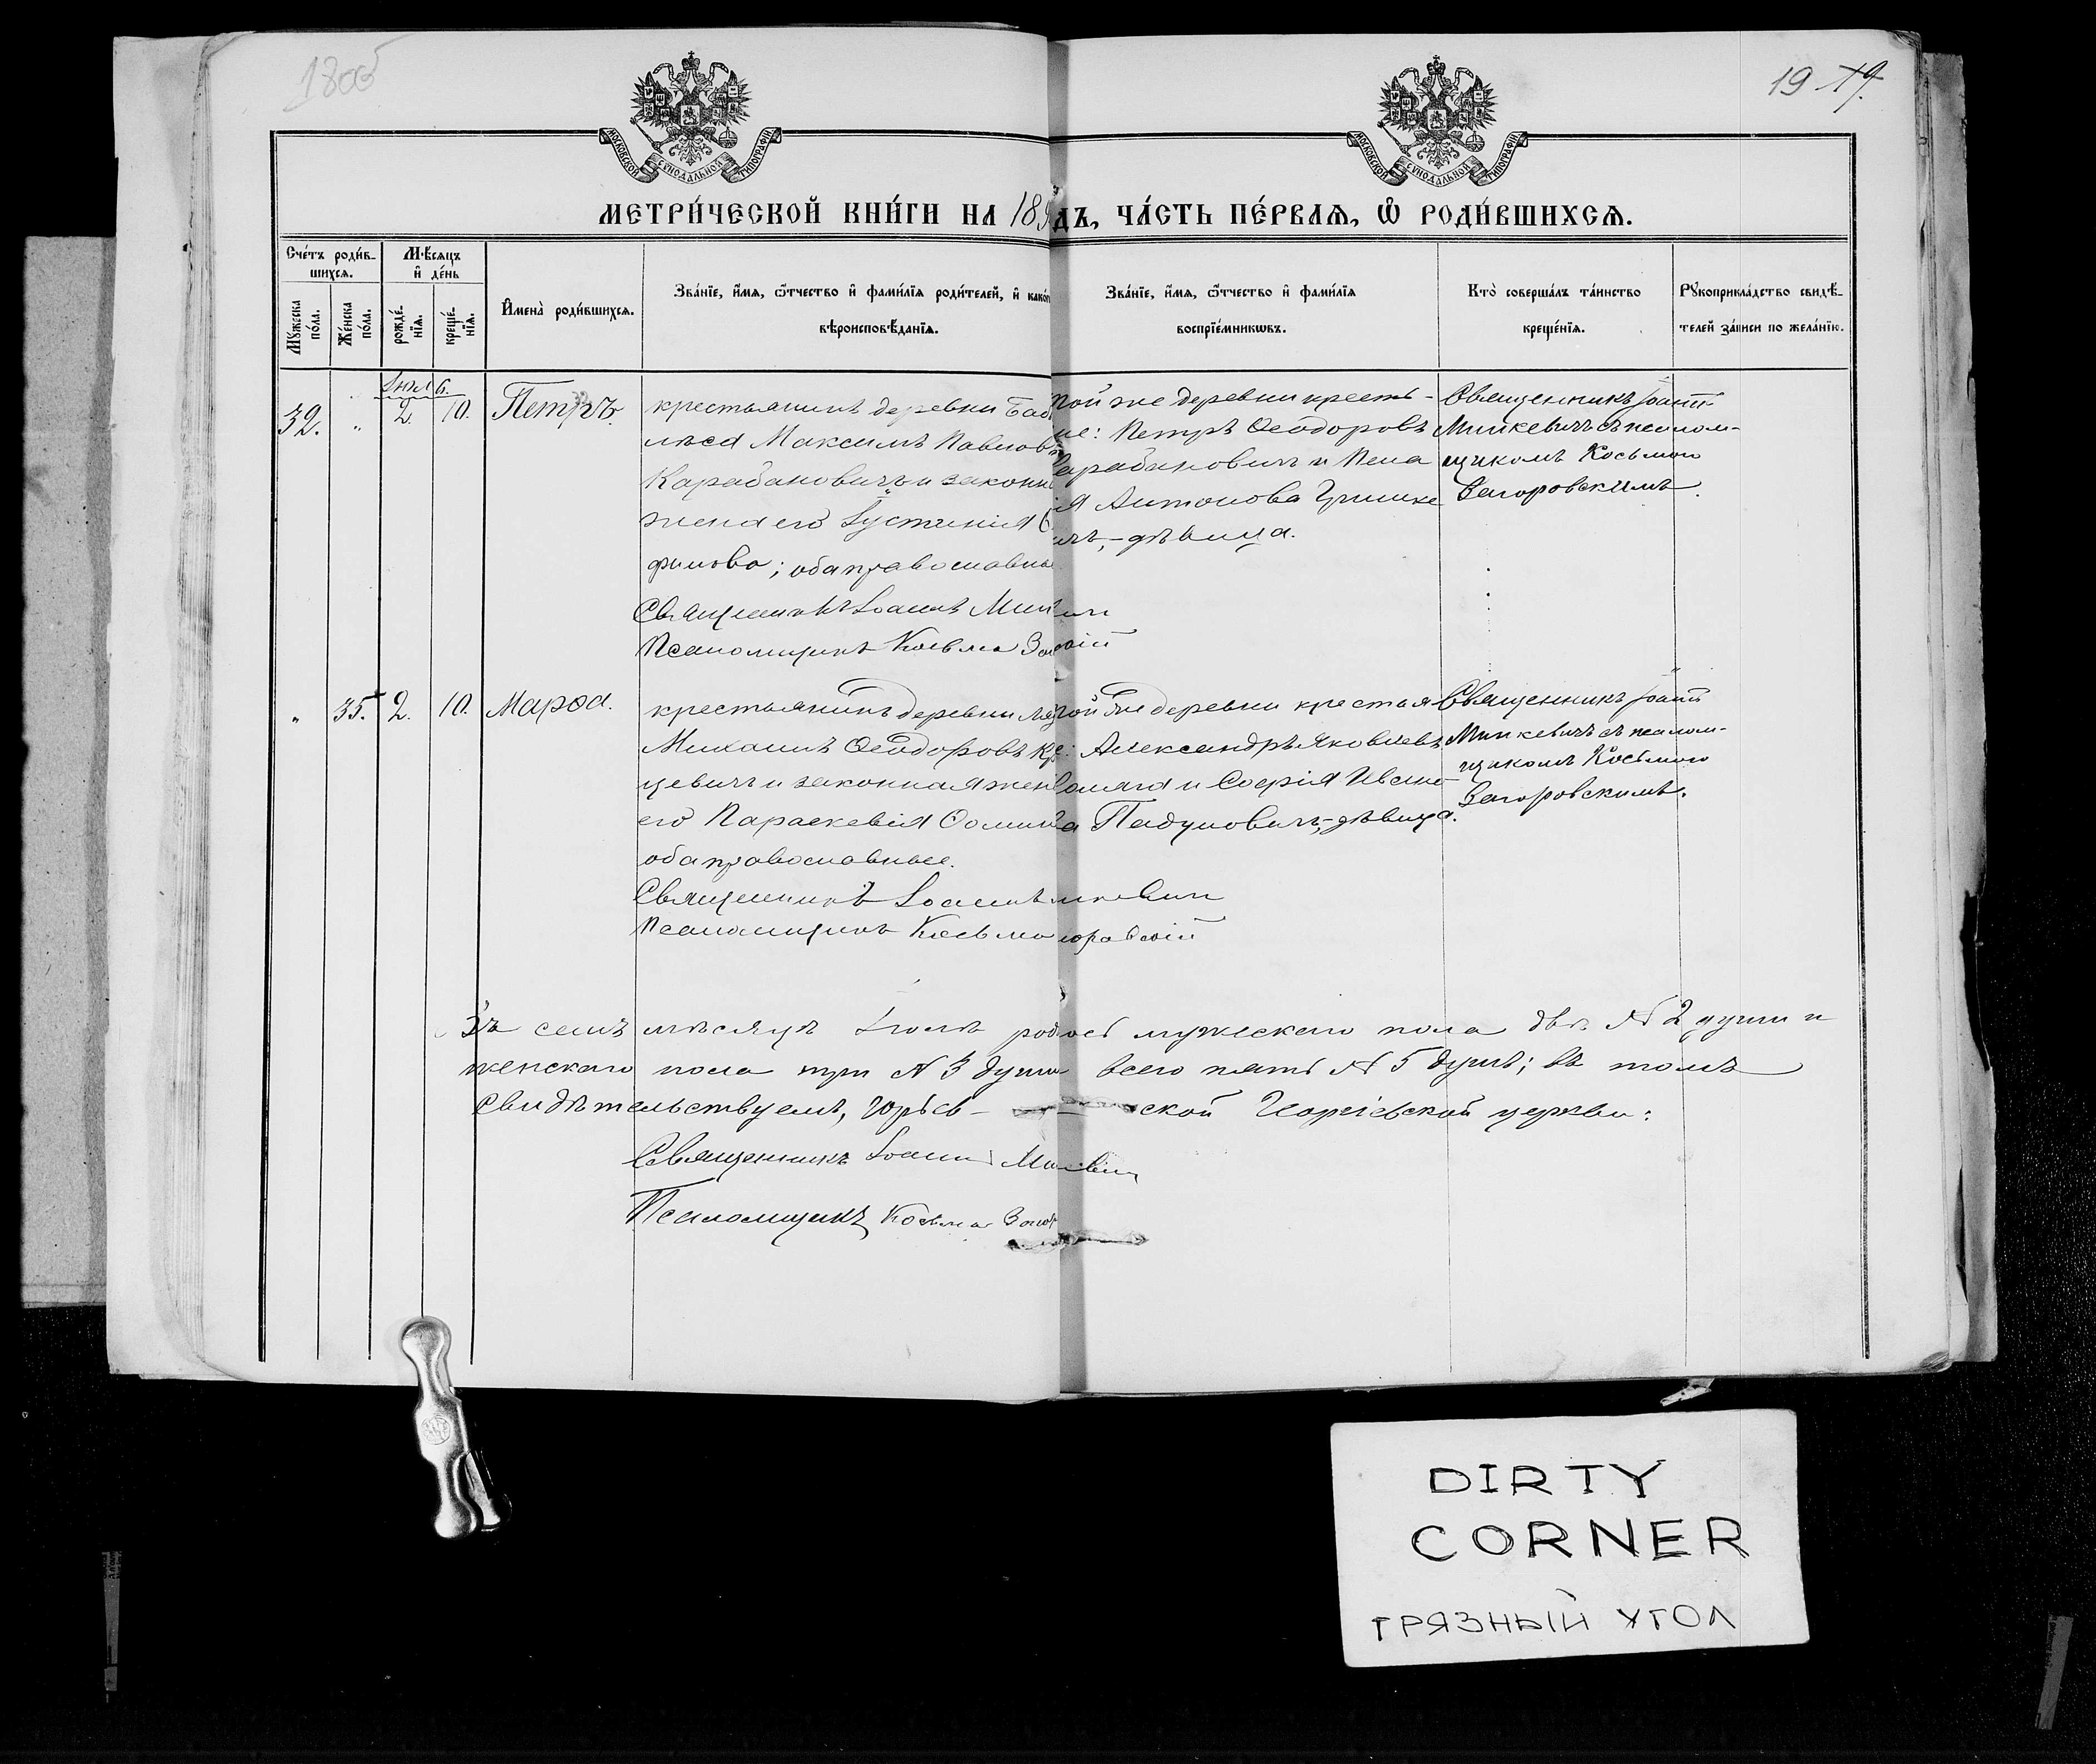 19
МОСКОВСКОЙ СѴНОДАЛЬНОЙ ТИПОГРАФІИ
МОСКОВСКОЙ СѴНОДАЛЬНОЙ ТИПОГРАФІИ
МЕТРИ́ЧЕСКОЙ КНИ́ГИ НА 189
дъ, ЧА́СТЬ ПЕ́РВАЯ, Ѡ РОДИ́ВШИХСЯ.
Сче́тъ роди́в-
шихся.
Мѣ́сяцъ
и҆ де́нь
Мꙋ́жеска
по́ла.
Же́нска
по́ла.
рожде́-
нїя.
креще́-
нїя.
И҆мена̀ роди́вшихся.
Зва́нїе, и҆́мя, ѻ҆́тчество и҆ фами́лїя роди́телей, и҆ како́
вѣроисповѣ́данїя.
Зва́нїе, и҆́мя, ѻ҆́тчество и҆ фами́лїя
воспрїе́мникѡвъ.
Кто̀ соверша́лъ та́инство
креще́нїя.
Рꙋкоприкла́дство свидѣ́-
телей за́писи по жела́нїю.
32. " 2. 10. Петръ.
крестьянинъ деревни
лѣса Максимъ Павлов
Карабановичъ и законн
жена его Іустинія
филова; оба православны
Священникъ Іоаннъ Мин
Псаломщикъ Косьма За
той же деревни кресть-
не: Петръ Ѳеодоровъ
Карабановичъ и Пела
я Антонова Гришке
ичъ, - дѣвица.
Священникъ Іоаннъ
Минкевичъ съ псалом-
щикомъ Косьмою
Загоровскимъ.
" 35. 2. 10. Марѳа.
крестьянинъ деревни
Михаилъ Ѳеодоровъ
цевичъ и законная жен
его Параскевія Ѳомин
оба православные.
Священникъ Іоаннъ
Псаломщикъ Косьма
той же деревни крестья
: Александръ Яковлевъ
и Софія Ивано
а Падуновичъ, - дѣвица.
Священникъ Іоаннъ
Минкевичъ съ псалом-
щикомъ Косьмою
Загоровскимъ.
Въ семъ мѣсяцѣ Іюлѣ род ось мужескаго пола двѣ № 2 души и
женскаго пола три № 3 души всего пять № 5 душъ; въ томъ
свидѣтельствуемъ, ской Георгіевской церкви:
Священникъ Іоаннъ
Псаломщикъ Косьма
DIRTY
CORNER
ГРЯЗНЫЙ УГОЛ